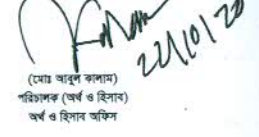 22/10/20
(মোঃ আবুল কালাম)
পরিচালক (অর্থ ও হিসাব)
অর্থ ও হিসাব অফিস